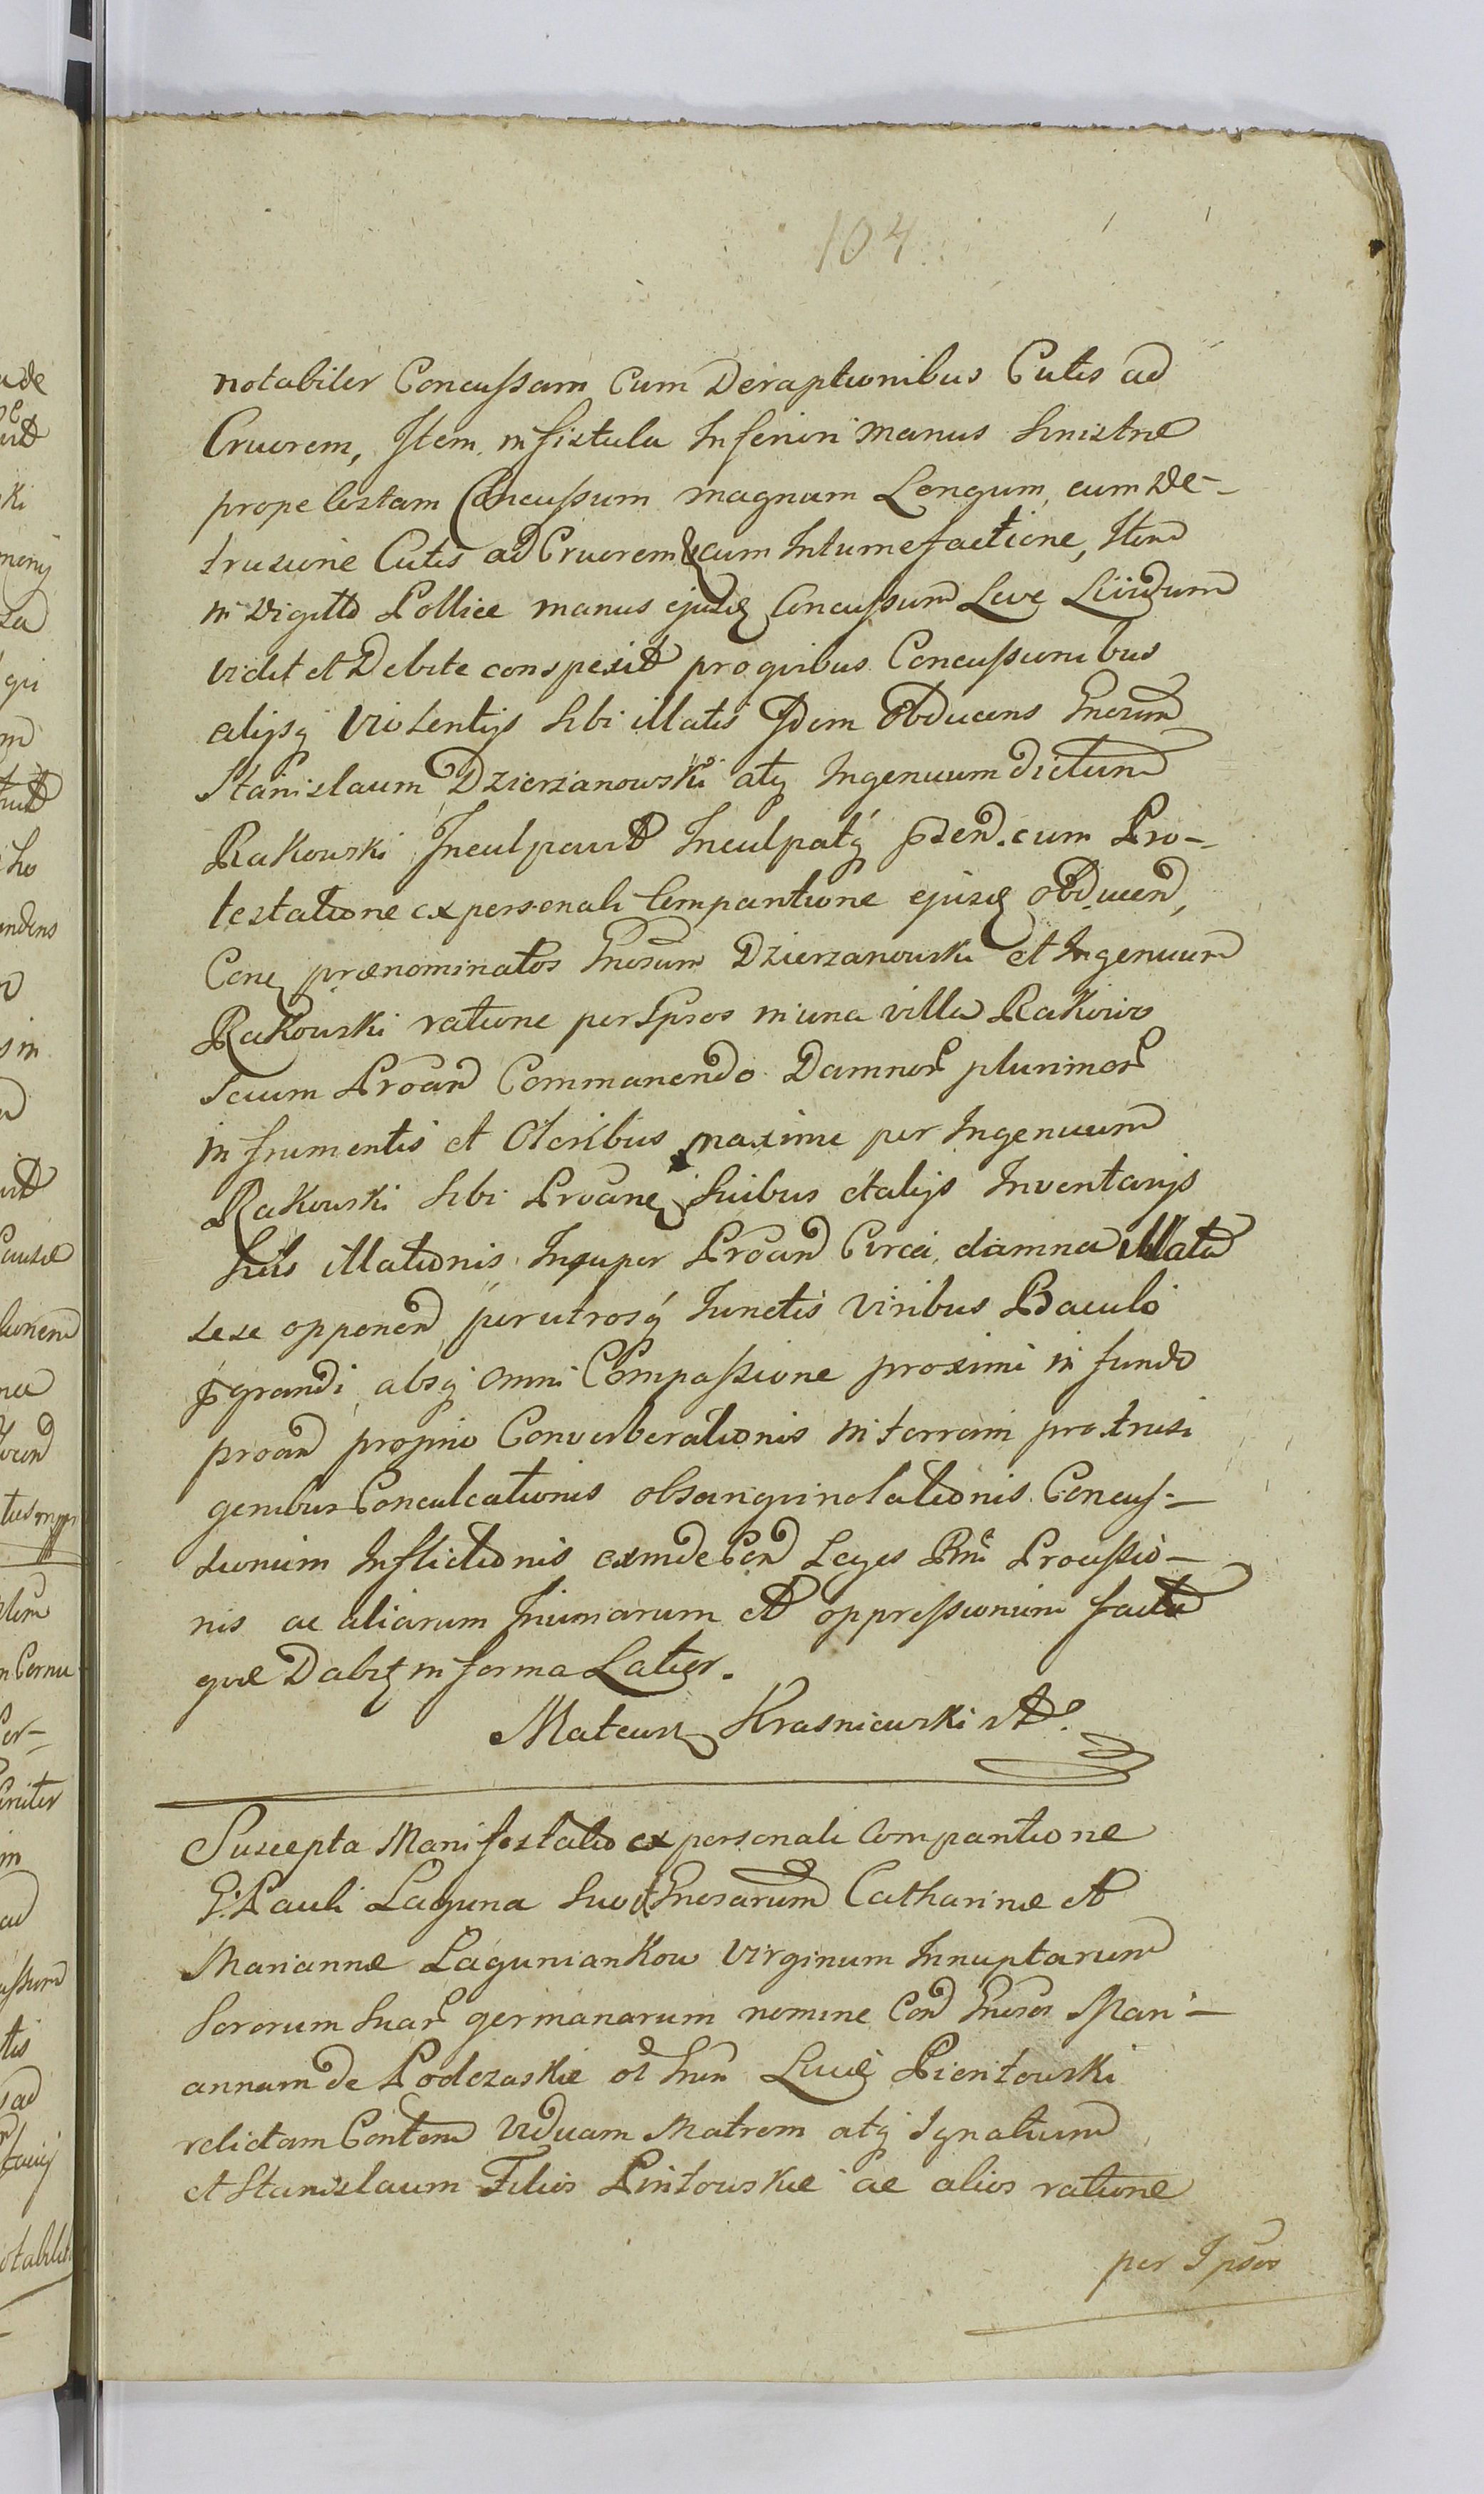 104
notabiler Concussam Cum Deraptionibus Cutis ad
Cruorem, Item in fistula Inferiori manus sinistræ
prope Costam Concussum magnum Longum, cum de-
trusione Cutis ad Cruorem & cum Intumefactione, Item
in digitto Pollice manus ejusdę Concussum Leve Lividum
vidit et Debite conspexit pro quibus Concussionibus
alijsq violentijs sibi illatis Idem Obducens Gnosum
Stanislaum Dzierzanowski atq Ingenuum dictum
Rakowski Inculpavit Inculpatq cum Pro-
testatione ex personali Comparitione ejusdę obducen,
Conę prænominatos Gnosum Dzierzanowski et Ingenuum
Rakowski ratione per Ipsos in una villa Rakowo
secum Proan Commanendo Damnor plurimor
in frumentis et Oleribus maxime per Ingenuum
Rakowski sibi Proanę suibus et alijs Inventarijs
suis illationis Insuper Proan Circa damna illata
sese opponen per utrosq Iunctis viribus Baculo
grandi absq omni Compassione proximi in fundo
proan proprio Converberationis in terram protrusi
genibus Conculcationis obsangvinolationis Concus-
sionum Inflictionis exinde Con Leges Rni Processio-
nis ac aliarum Iniuriarum et oppressionum facta
quæ Dabitę in forma Latior.
Mateusz Krasniewski
Suscepta Manifestatio ex personali Comparitione
G. Pauli Laguna suo & Gnosarum Catharinæ et
Mariannæ Laguniankow Virginum Innuptarum
Sororum suar germanarum nomine Con Gnosos Mari-
annam de Podczaskie Pientowski
relictam Conten viduam Matrem atq Ignatium
et Stanislaum Filios Pintowskie ac alios ratione
per Ipsos